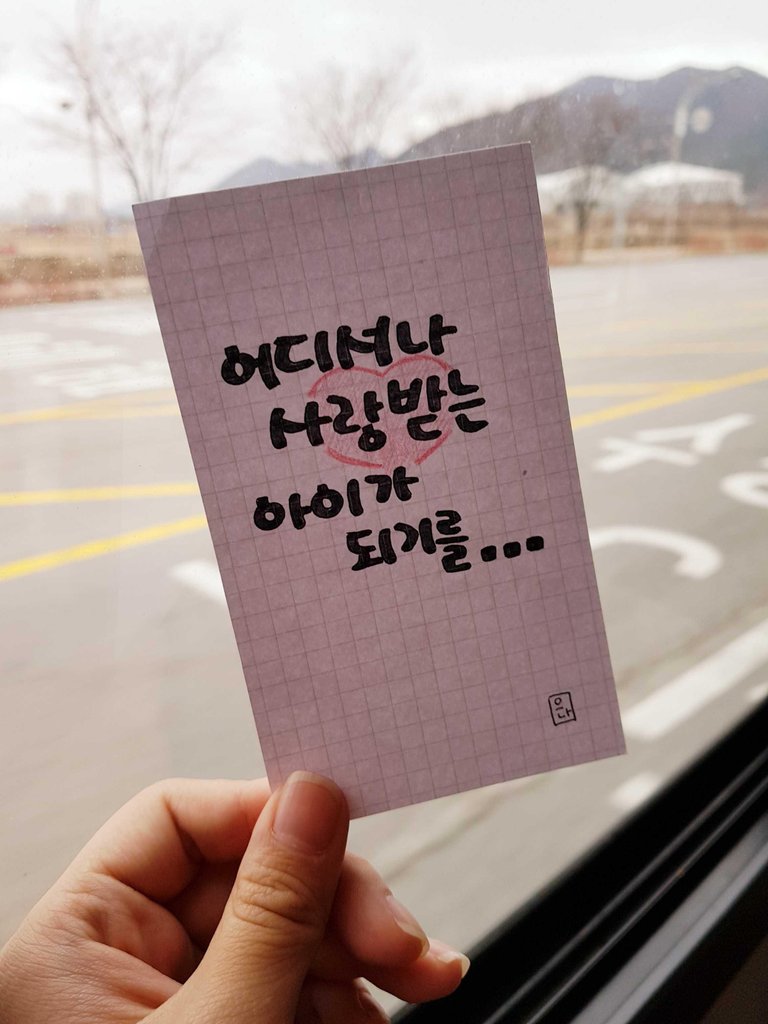 어디서나
사랑받는
아이가
되기를...
은다